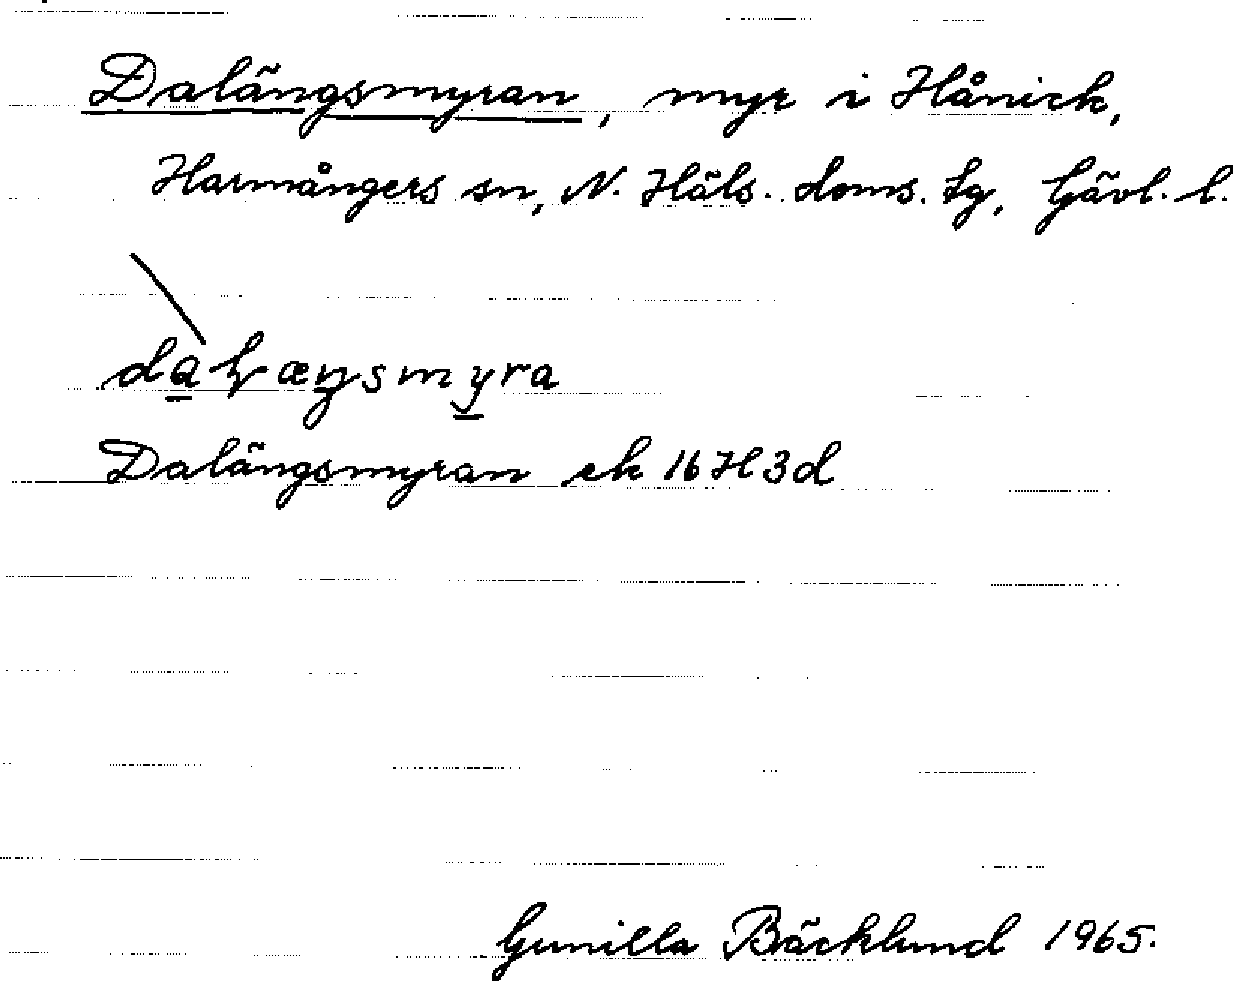 Dalängsmyran, myr i Hånick,
Harmångers sn, N. Häls. doms. tg, Gävl. l.
daɫæŋsmyra
Dalängsmyran ek 16H3d
Gunilla Bäcklund 1965.